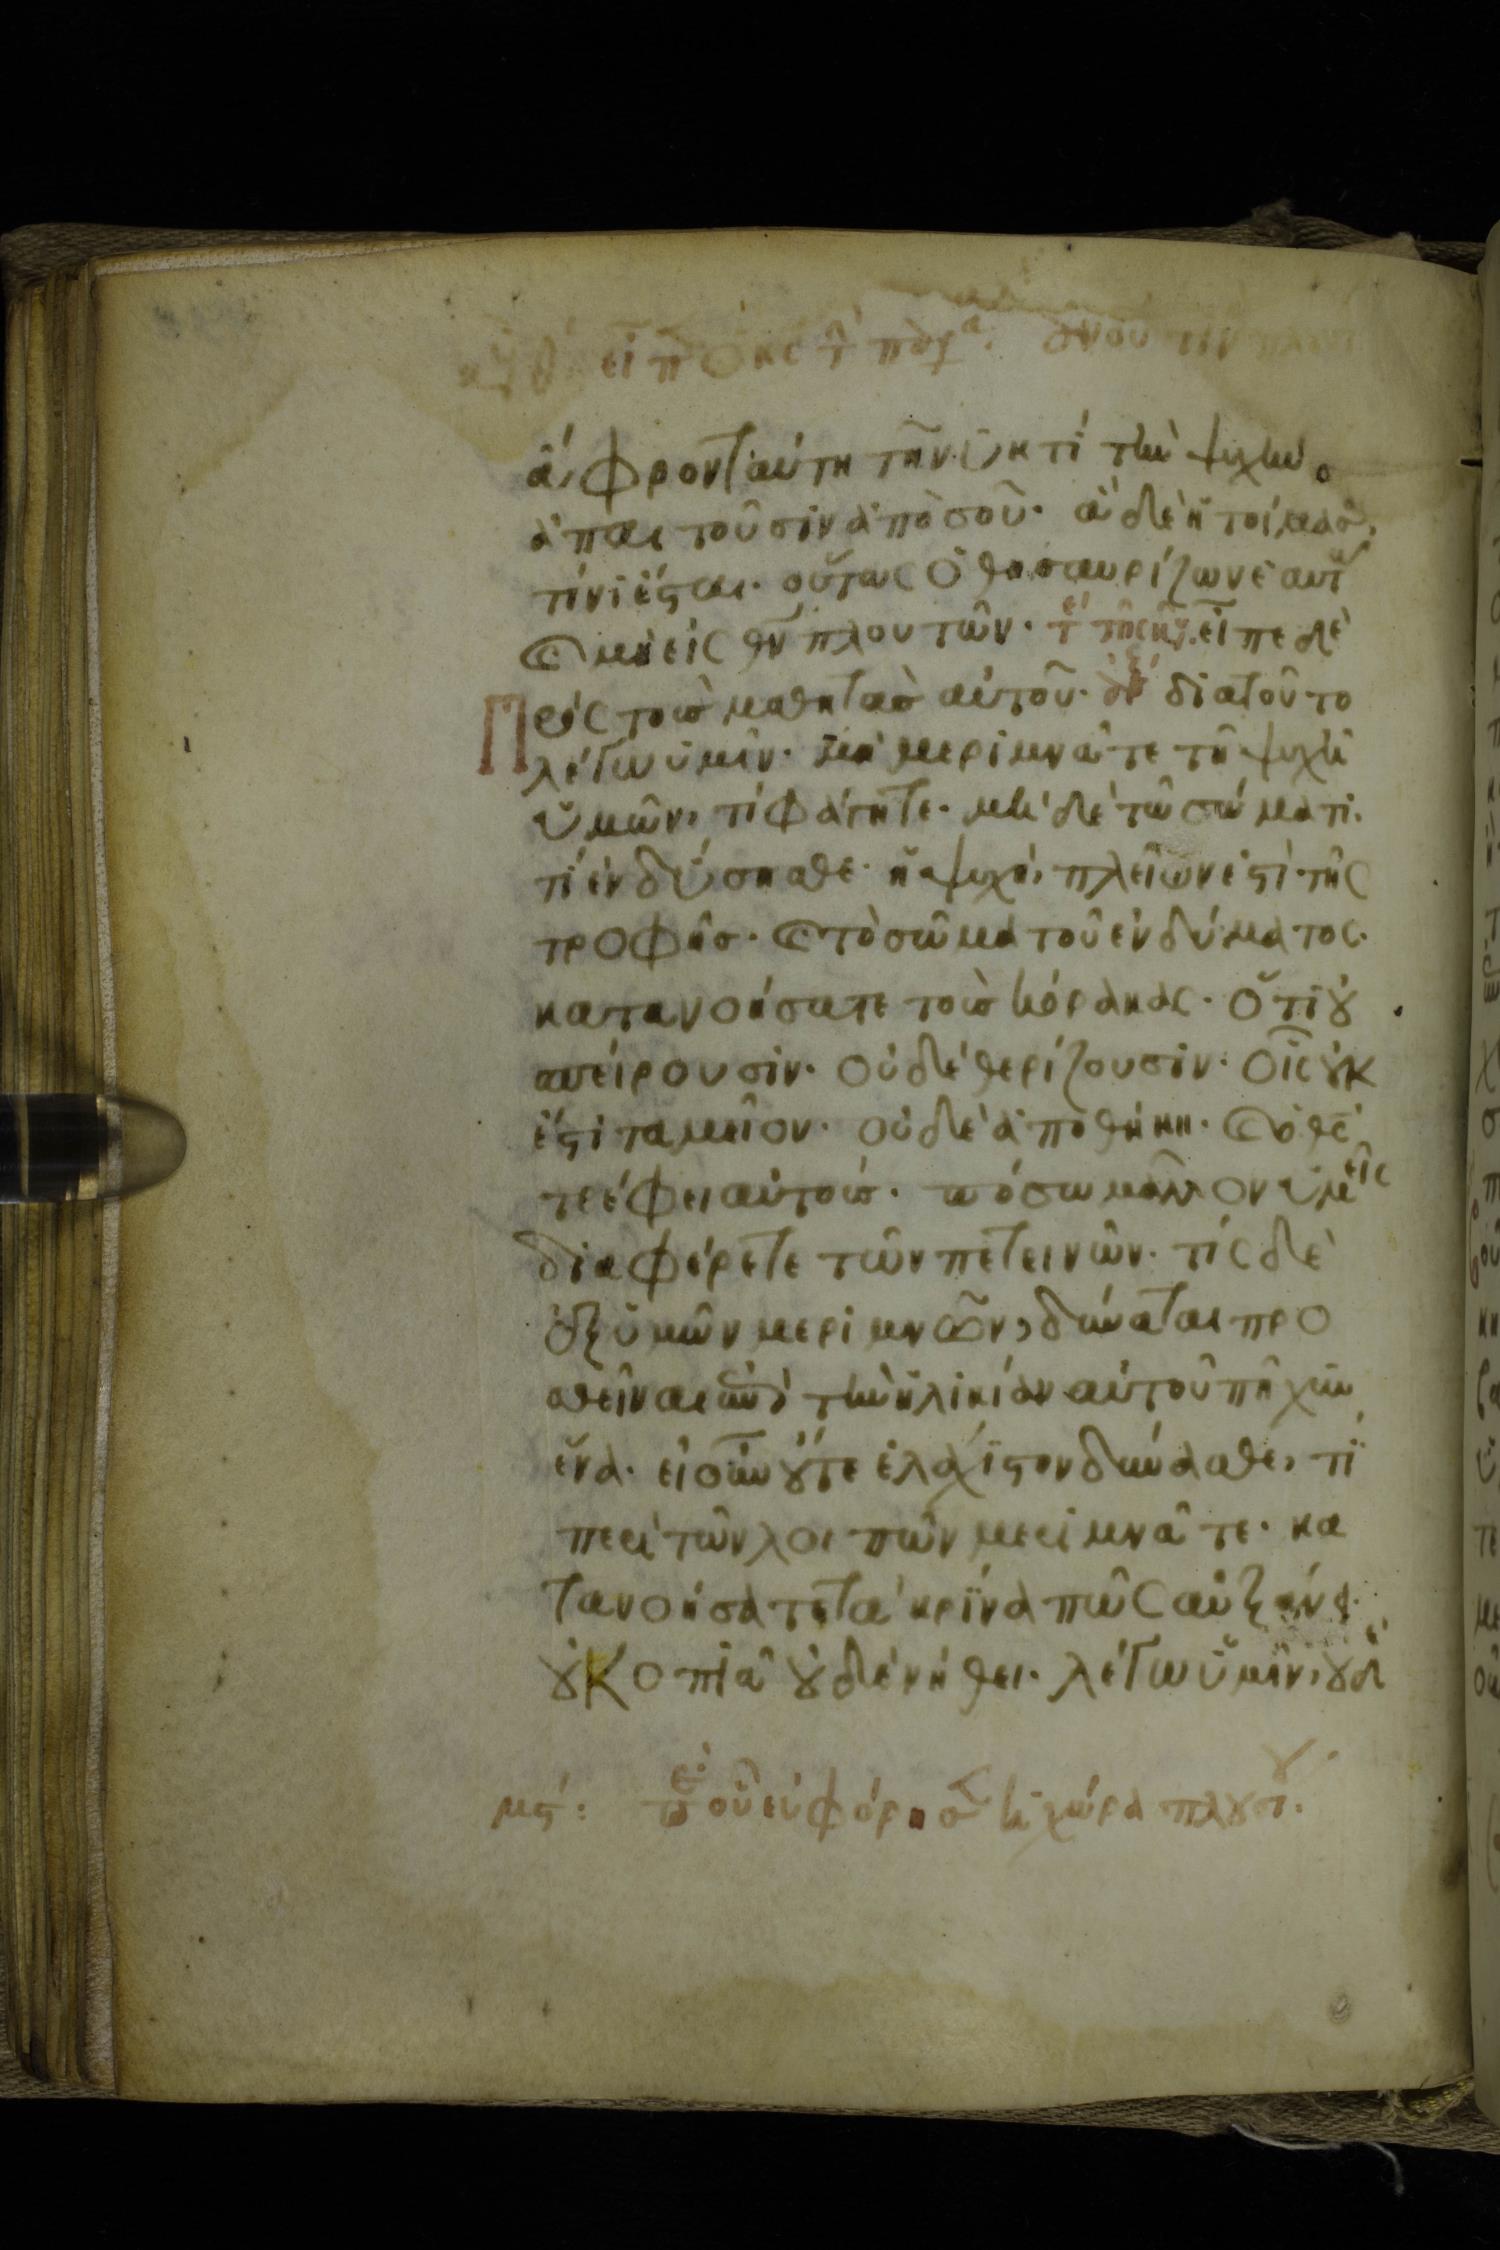 εἶπ ὁ κς τ παρ α. ἀνου τινὸ πλουσι
ἄφρον ταύτη τῆ νυκτὶ τὴν ψυχήν σου
ἀπαιτοῦσιν ἀπὸ σοῦ· ἃ δὲ ἡτοίμασας,
τίνι ἔσται· οὕτως ὁ θησαυρίζων ἑαυτῶ
καὶ μὴ εἰς θν πλουτῶν· τε τῆς κυ. εἶπε δὲ
Πρὸς τοὺς μαθητὰς αὐτοῦ· διατοῦτο
λέγω ὑμῖν· μὴ μεριμνᾶτε τῆ ψυχῆ
ὑμῶν, τί φάγητε· μὴ δὲ τῶ σώματι.
τί ἐνδύσησθε· ἡ ψυχὴ, πλεῖων ἐστὶ τῆς
τροφῆσ· καὶ τὸ σῶμα τοῦ ἐνδύματος.
κατανοήσατε τοὺς κόρακας· ὅτι οὐ
σπείρουσιν· οὐδὲ θερίζουσιν· οἷς οὐκ
ἔστι ταμεῖον· οὐδὲ ἀποθήκη· καὶ ὁ θς
τρέφει αὐτούς· πόσω μᾶλλον ὑμεῖς
διαφέρετε τῶν πετεινῶν· τίς δὲ
ἐξ ὑμῶν μεριμνῶν, δύναται προ
σθεῖναι ἐπὶ τὴν ἡλικίαν αὐτοῦ πῆχυν
ἕνα· εἰ οὖν οὔτε ἐλάχιστον δύνασθε, τί
περὶ τῶν λοιπῶν μεριμνᾶτε· κα
τανοήσατε τὰ κρίνα πῶς αὐξάνει·
οὐ κοπιᾶ οὐδὲ νήθει· λέγω ὑμῖν, οὐδὲ
μς: πε οὗ εὐφόρησεν ἡ χώρα πλουσίου.